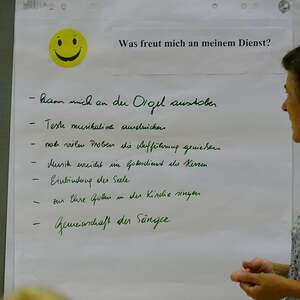 Was freut mich an meinem Dienst?
- Kann mich an der Orgel austoben
- Texte musikalisch ausdrücken
- nach vielen Proben die Aufführung genießen
- Musik erreicht im Gottesdienst die Herzen
- Einbindung der Seele
- zur Ehre Gottes in der Kirche singen
- Gemeinschaft der Sänger